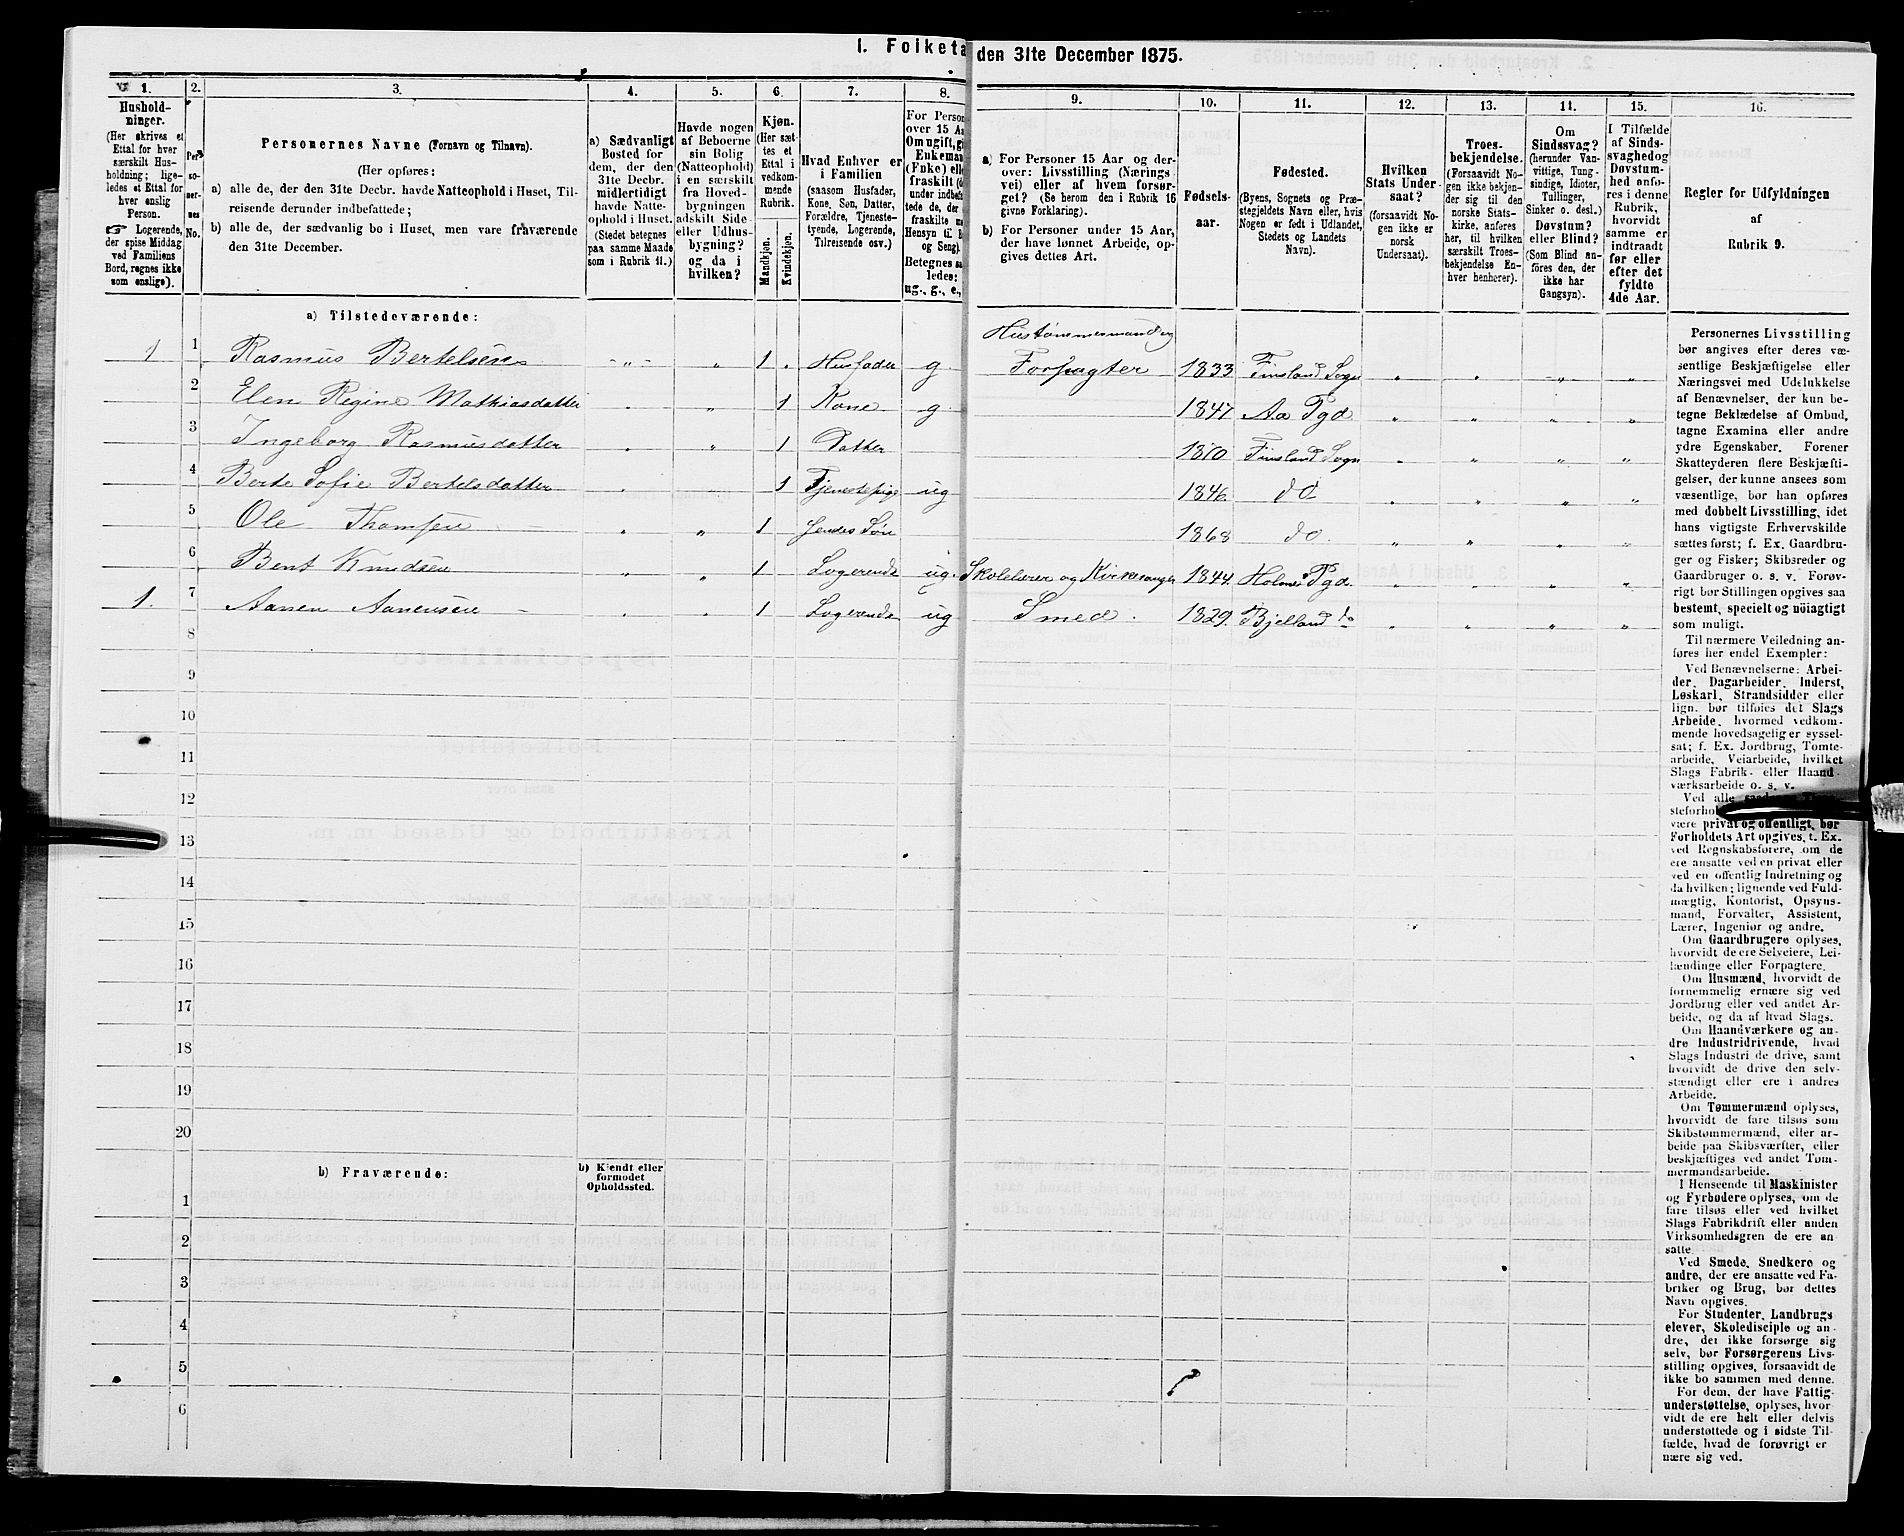 I. Folketæ den 31te December 1875.
1. 2. 3. 4. 5. 6. 7. 8. 9. 10. 11. 12. 13. 14. 15. 16.
Husholdninger. (Her skrives et Ettal for hver særskilt Husholdning; ligeledes et Ettal for hver enslig Person. ☞ Logerende, der spise Middag ved Familiens Bord, regnes ikke som enslige).
Personernes No.
Personernes Navne (Fornavn og Tilnavn).
(Her opføres:
a) alle de, der den 31te Decbr. havde Natteophold i Huset, Tilreisende derunder indbefattede;
b) alle de, der sædvanlig bo i Huset, men vare fraværende den 31te December.
a) Sædvanligt Bosted for dem, der den 31te Decbr. midlertidigt havde Natteophold i Huset. (Stedet betegnes paa samme Maade som i Rubrik 11.)
Havde nogen af Beboerne sin Bolig (Natteophold) i en særskilt fra Hovedbygningen adskilt Side- eller Udhusbygning? og da i hvilken?
Kjøn. (Her sættes et Ettal i vedkommende Rubrik. Mandkjøn. Kvindekjøn.
Hvad Enhver er i Familien (saasom Husfader, Kone, Søn, Datter, Forældre, Tjenestetyende, Logerende, Tilreisende osv.)
For Person over 15 Aa Om ugift, gi Enkemand (Enke) elle fraskilt (
under indbefattede de, der fraskilte m Hensyn til B og Seng). Betegnes saaledes: ug., g., e.,
a) For Personer 15 Aar og derover: Livsstilling (Næringsvei) eller af hvem forsørget? (Se herom den i Rubrik 16 givne Forklaring).
b) For Personer under 15 Aar, der have lønnet Arbeide, opgives dettes Art.
Fødselsaar.
Fødested. (Byens, Sognets og Præstegjeldets Navn eller, hvis Nogen er født i Udlandet, Stedets og Landets Navn).
Hvilken Stats Undersaat? (forsaavidt Nogen ikke er norsk Undersaat).
Troesbekjendelse. (Forsaavidt Nogen ikke bekjender sig til den norske Statskirke, anføres her, til hvilken særskilt Troesbekjendelse Enhver henhører).
Om Sindssvag? (herunder Vanvittige, Tungsindige, Idioter, Tullinger, Sinker o. desl.) Døvstum? eller Blind? (Som Blind anføres den, der ikke har Gangsyn).
I Tilfælde af Sindssvaghed og Døvstumhed anføres i denne Rubrik, hvorvidt samme er indtraadt før eller efter det fyldte 4de Aar.
Regler for Udfyldningen af Rubrik 9.
a) Tilstedeværende:
1 1 Rasmus Bertelsen „ „ 1 . Husfader g. Hustømmermand og Forpagter 1833 Finsland Sogn „ „ „ „
2 Elen Regine Mathiasdatter „ „ 1 Kone g. 1847 Aa Pgd „ „ „ „
3 Ingeborg Rasmusdatter „ „ 1 Datter 1870 Finsland Sogn „ „ „ „
4 Berte Sofie Bertelsdatter „ „ 1 Tjenestepige ug 1846 do „ „ „ „
5 Ole Thomsen „ „ 1 Hendes Søn 1868 do. „ „ „ „
6 Bent Knudsen „ „ 1 Logerende ug. Skolelærer og Kirkesanger 1844 Holme Pgd. „ „ „ „
1. 7 Aanen Aanensen „ „ 1 Logerende ug Smed. 1829. Bjelland do „ „ „ „
8
9
10
11
12
13
14
15
16
17
18
19
20
b) Fraværende: b) Kjendt eller formodet Opholdssted.
1
2
3
4
5
6
Personernes Livsstilling
bør angives efter deres væsentlige
Beskjæftigelse eller
Næringsvei med Udelukkelse
af Benævnelser, der kun betegne
Beklædelse af Ombud,
tagne Examina eller andre
ydre Egenskaber. Forener
Skatteyderen flere Beskjæftigelser,
der kunne ansees som
væsentlige, bør han opføres
med dobbelt Livsstilling, idet
hans vigtigste Erhvervskilde
sættes først; f. Ex. Gaardbruger
og Fisker; Skibsreder og
Gaardbruger o. s. v. Forøvrigt
bør Stillingen opgives saa
bestemt, specielt og nøiagtigt
som muligt.
Til nærmere Veiledning anføres
her endel Exempler:
Ved Benævnelserne: Arbeider,
Dagarbeider, Inderst,
Løskarl, Strandsidder eller
lign. bør tilføies det Slags
Arbeide, hvormed vedkommende
hovedsagelig er sysselsat;
f. Ex. Jordbrug, Tomtearbeide,
Veiarbeide, hvilket
Slags Fabrik- eller Haandværksarbeide
o. s. v.
Ved alle
være privat og offentligt, bør
Forholdets Art opgives, t. Ex.
ved Regnskabsførere, om de
ere ansatte ved en privat eller
ved en offentlig Indretning og
da hvilken; lignende ved Fuldmægtig,
Kontorist, Opsynsmand,
Forvalter, Assistent,
Lærer, Ingeniør og andre.
Om Gaardbrugere oplyses,
hvorvidt de ere Selveiere, Leilændinge
eller Forpagtere.
Om Husmænd, hvorvidt de
fornemmelig ernære sig ved
Jordbrug eller ved andet Arbeide,
og da af hvad Slags.
Om Haandværkere og andre
Industridrivende, hvad
Slags Industri de drive, samt
hvorvidt de drive den selvstændigt
eller ere i andres
Arbeide.
Om Tømmermænd oplyses,
hvorvidt de fare tilsøs som
Skibstømmermænd, eller arbeide
paa Skibsværfter, eller
beskjæftiges ved andet Tømmermandsarbeide.
I Henseende til Maskinister
og Fyrbødere oplyses, om de
fare tilsøs eller ved hvilket
Slags Fabrikdrift eller anden
Virksomhedsgren de ere ansatte.
Ved Smede, Snedkere og
andre, der ere ansatte ved Fabriker
og Brug, bør dettes
Navn opgives.
For Studenter, Landbrugselever,
Skoledisciple og andre,
der ikke forsørge sig
selv, bør Forsørgerens Livsstilling
opgives, forsaavidt de
ikke bo sammen med denne.
For dem, der have Fattigunderstøttelse,
oplyses, hvorvidt
de ere helt eller delvis
understøttede og i sidste Tilfælde,
hvad de forøvrigt er
nære sig ved.